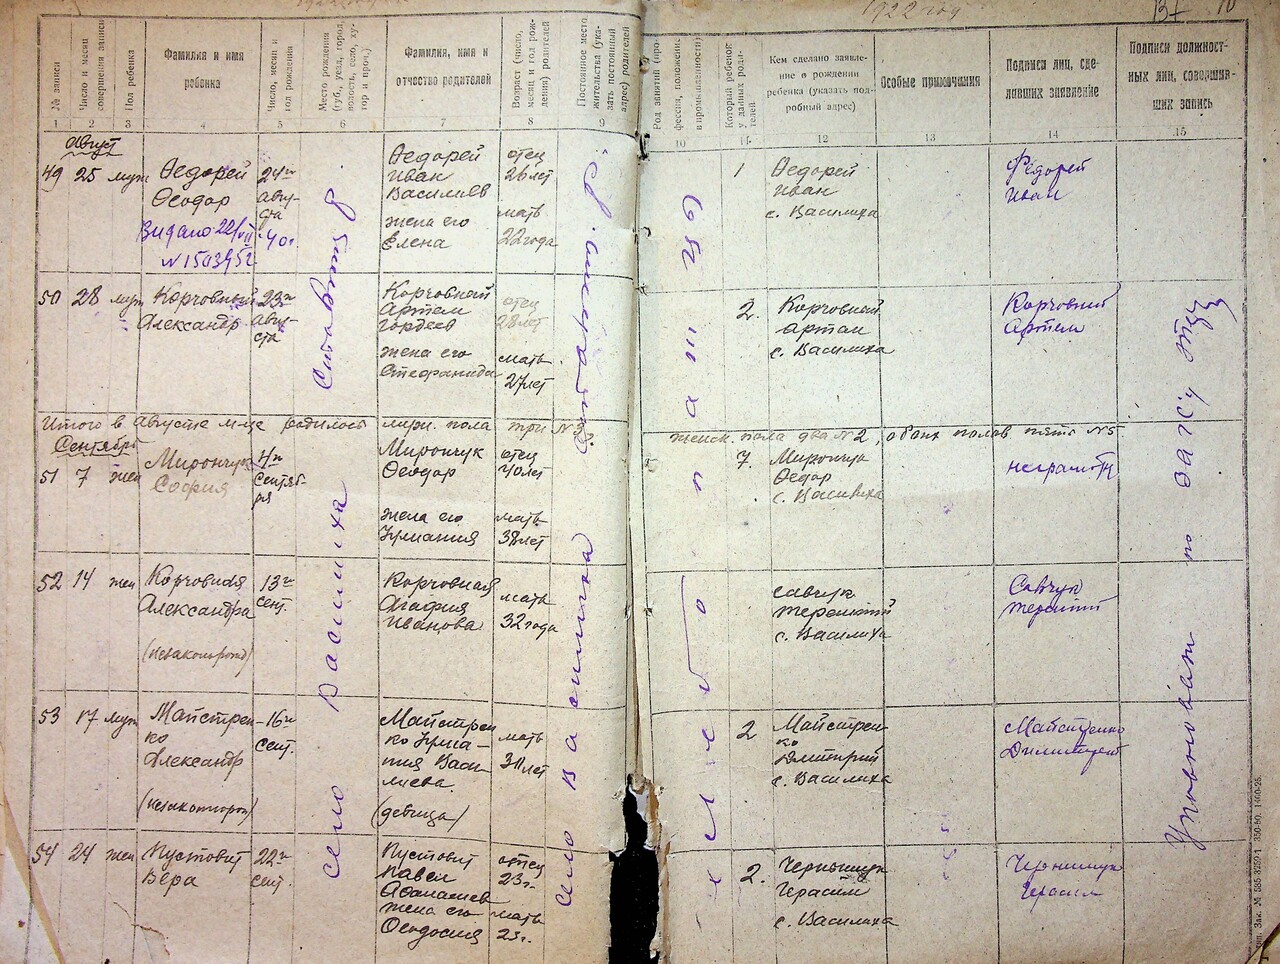 1922 год
№ записи
Число и месяц совершения записи
Пол ребенка
Фамилия и имя
ребенка
Число, месяц и
год рождения
Место рождения
(губ., уезд, город,
волость, село, ху-
тор и проч.)
Фамилия, имя и
отчество родителей
Возраст (число,
месяц и год рож-
дения) родителей
Постоянное место
жительства (ука-
зать постоянный
адрес) родителей
Род занятий (про-
фессия, положение
в промышленности)
Который ребенок
у данных роди-
телей
Кем сделано заявле-
ние о рождении
ребенка (указать под-
робный адрес)
Особые примечания
Подписи лиц, сде-
лавших заявление
Подписи должност-
ных лиц, соверши-
вших запись
1 2 3 4 5 6 7 8 9 10 11 12 13 14 15
Август
49 25 муж
Федорей
Феодор
Видано 22/VII 40 г.
N 1503952
24го
авгу-
ста
Федорей
Иван
Васильев
жена его
Елена
отец
26 лет
мать
22 года
1
Федорей
Иван
с. Василиха
Федорей
Иван
50 28 муж
Корчовный
Александр
23го
авгу-
ста
Корчовный
Артем
Гордеев
жена его
Стефанида
отец
28 лет
мать
27 лет
2.
Корчовный
Артем
с. Василиха
Корчовний
Артем
Итого в августе м-це родилось муж. пола три N 3
женск. пола два N 2, обоих полов пять N 5.
Сентябрь
51 7 жен
Мирончук
София
4го
Сентяб-
ря
Мирончук
Феодор
жена его
Улиания
отец
40 лет
мать
38 лет
7.
Мирончук
Федор
с. Василиха
неграмотн
52 14 жен
Корчовная
Александра
(незаконорожд)
13го
сент.
Корчовная
Агафия
Иванова
мать
32 года
Савчук
Терентий
с. Василиха
Савчук
Терентій
53 17 муж
Майстрен-
ко
Александр
(незаконорож)
16го
сент.
Майстрен
ко Улиа-
ния Васи-
лиева.
(девица)
мать
30 лет
2
Майстрен
ко
Дмитрий
с. Василиха
Майстренко
54 24 жен
Пустовит
Вера
22го
сент.
Пустовит
Павел
Афанасиев
жена его
Феодосия
отец
23 г.
мать
23 г.
2.
Чернышук
Герасим
с. Василиха
Герасим
село Василиха Ставищ. р
село Василиха Ставищ. р.
Хлебопашци
Уповноваж по ЗАГСу